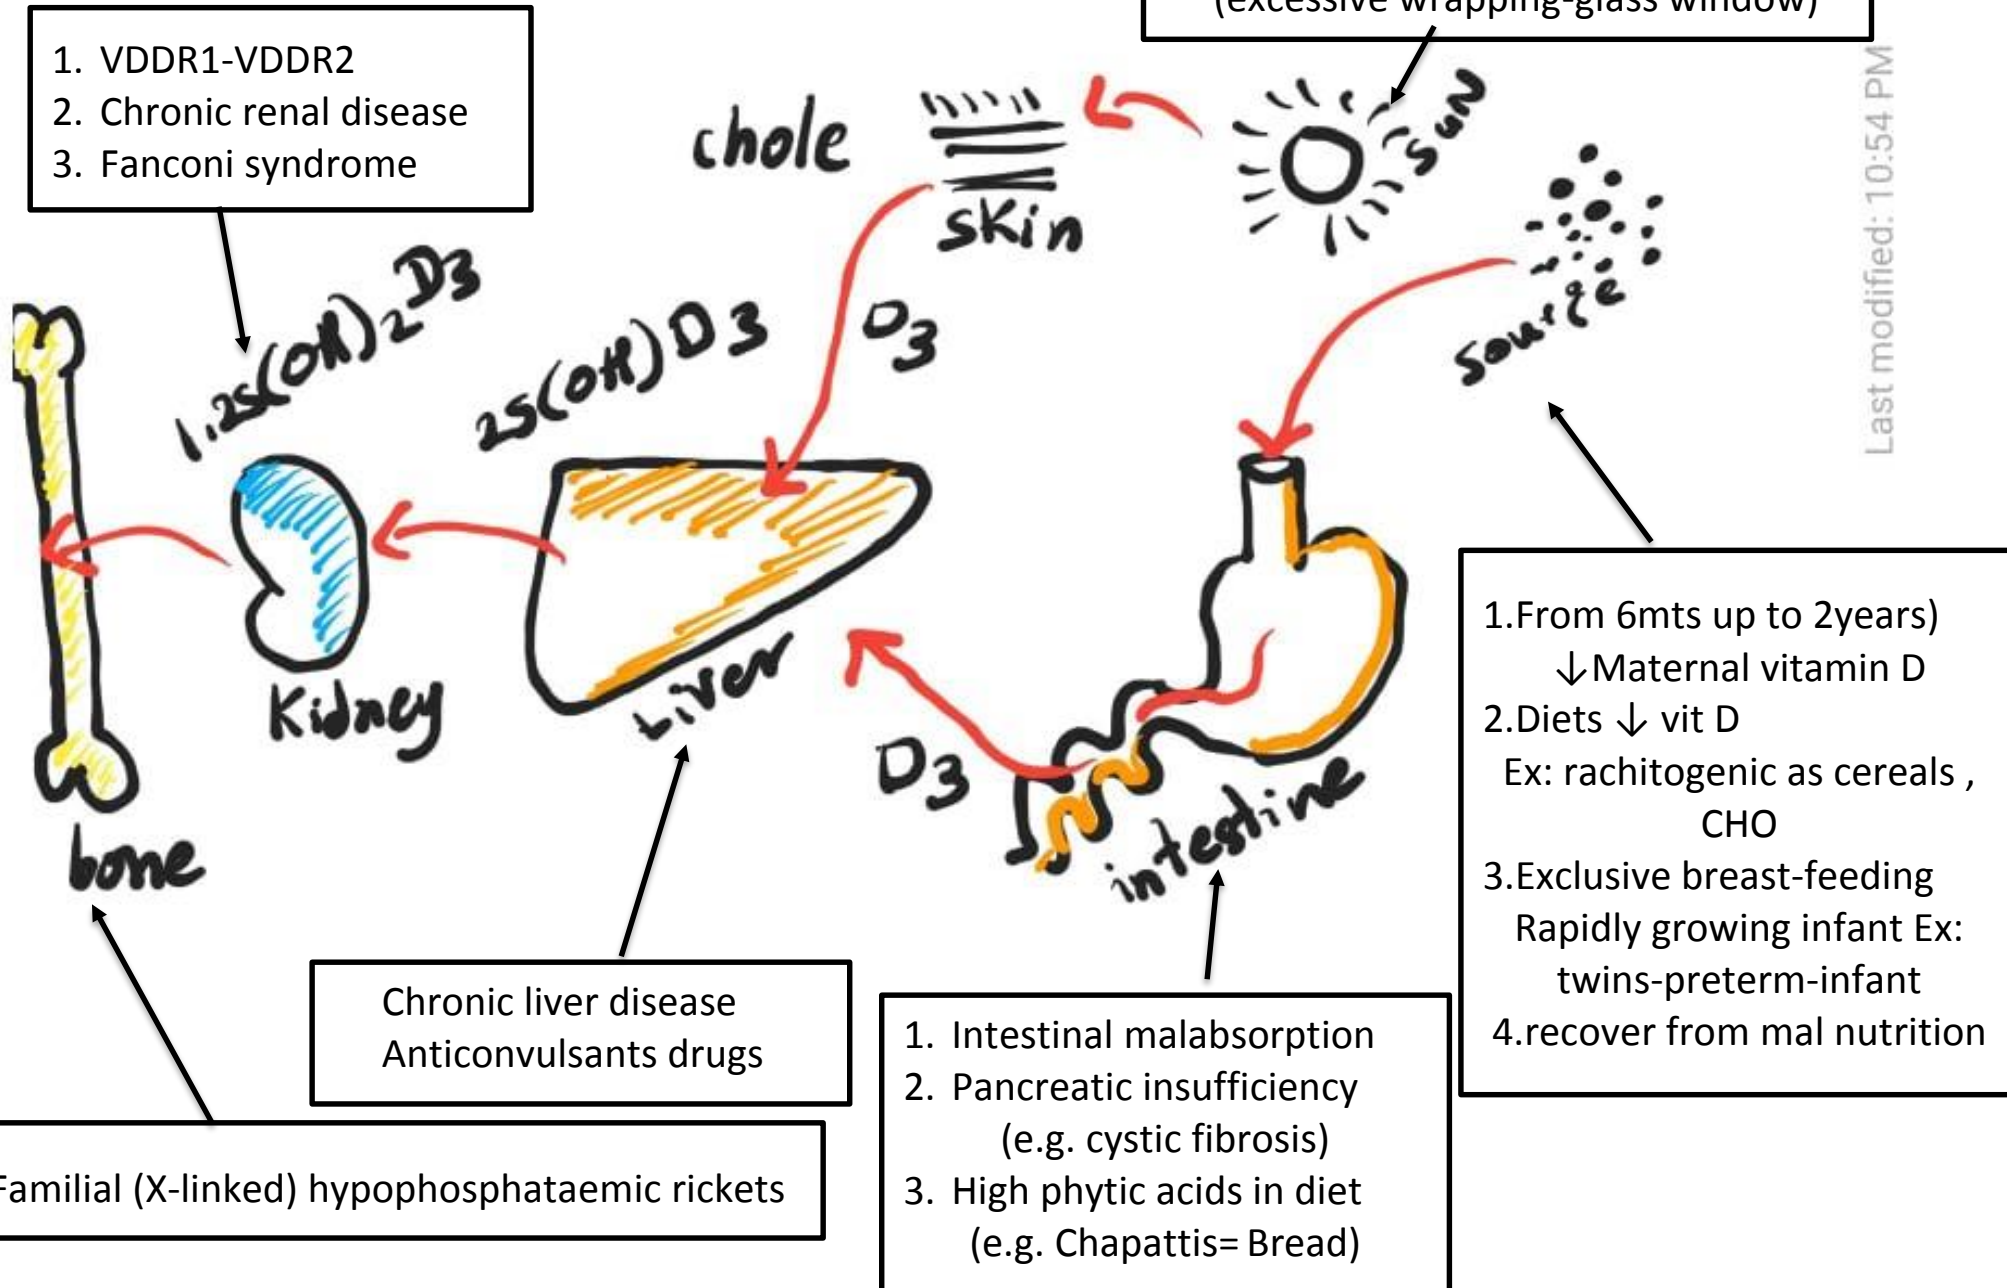 (excessive wrapping-glass window)
1. VDDR1-VDDR2
2. Chronic renal disease
3. Fanconi syndrome
chole
skin
sun
source
Last modified: 10:54 PM
1.25(OH)2 D3
25(OH) D3
D3
Kidney
Liver
D3
intestine
bone
1.From 6mts up to 2years)
↓Maternal vitamin D
2.Diets ↓ vit D
Ex: rachitogenic as cereals ,
CHO
3.Exclusive breast-feeding
Rapidly growing infant Ex:
twins-preterm-infant
4.recover from mal nutrition
Chronic liver disease
Anticonvulsants drugs
1. Intestinal malabsorption
2. Pancreatic insufficiency
(e.g. cystic fibrosis)
3. High phytic acids in diet
(e.g. Chapattis= Bread)
Familial (X-linked) hypophosphataemic rickets